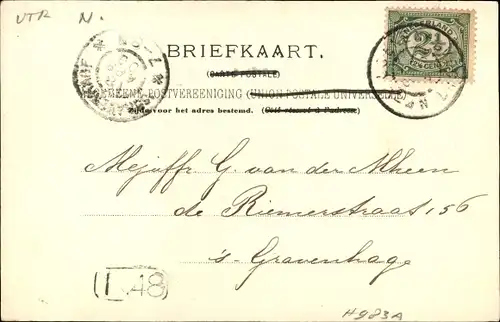 VTR N.
BRIEFKAART.
(CARTE POSTALE)
ALGEMEENE POSTVEREENIGING (UNION POSTALE UNIVERSELLE)
Zijde voor het adres bestemd. (Côté réservé à l'adresse)
NEDERLAND
2½
2½ CENT
Mejuffr G. van der Mheen
de Riemerstraat 156
's-Gravenhage
48
H983A